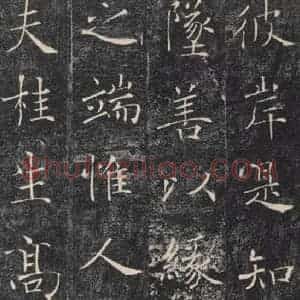 彼岸是知
墜善以緣
之端惟人
夫桂生高